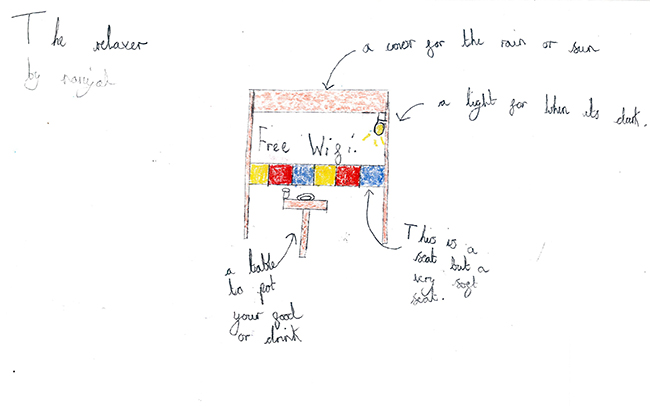 The relaxer
by
a cover for the rain or sun
a light for when its dark.
Free Wifi.
This is a
seat but a
very soft
seat.
a table
to pot
your food
or drink